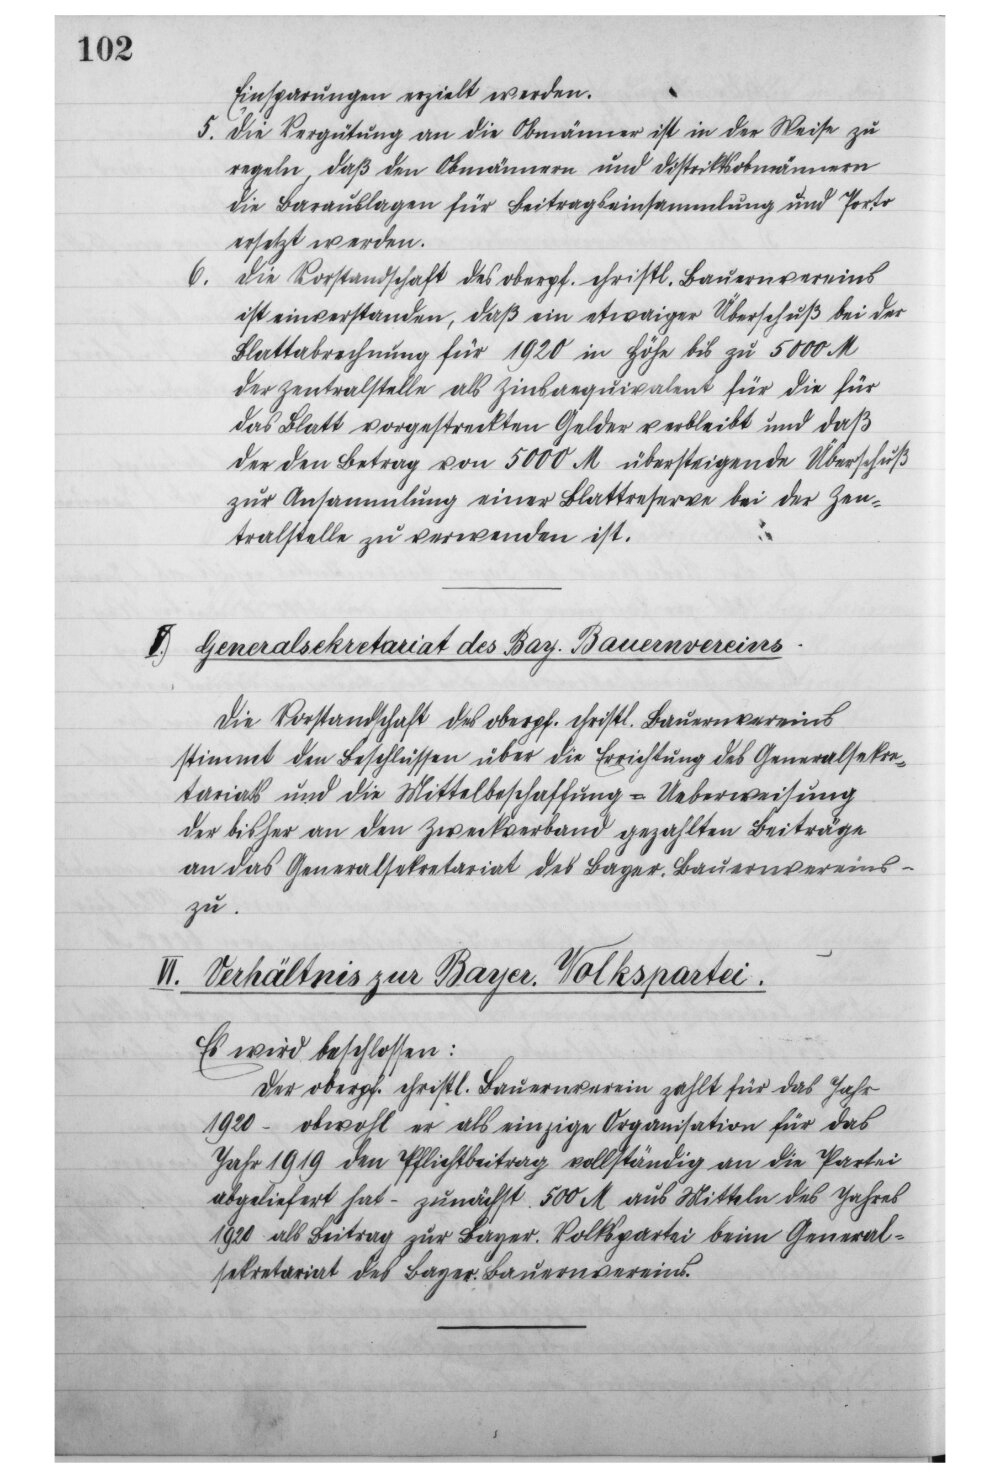 102
Einsparungen erzielt werden.
5. Die Vergütung an die Obmänner ist in der Weise zu
regeln, daß den Obmännern und Distriktsobmännern
die Barauslagen für Beitragseinsammlung und Porto
ersetzt werden.
6. Die Vorstandschaft des oberpf. christl. Bauernvereins
ist einverstanden, daß ein etwaiger Überschuß bei der
Blattabrechnung für 1920 in Höhe bis zu 5000 M
der Zentralstelle als Zinsaequivalent für die für
das Blatt vorgestreckten Gelder verbleibt und daß
der den Betrag von 5000 M übersteigende Überschuß
zur Ansammlung einer Blattreserve bei der Zen=
tralstelle zu verwenden ist.
V.) Generalsekretariat des Bay. Bauernvereins.
Die Vorstandschaft des oberpf. christl. Bauernvereins
stimmt den Beschlüssen über die Errichtung des Generalsekre=
tariats und die Mittelbeschaffung = Ueberweisung
der bisher an den Zweckverband gezahlten Beiträge
an das Generalsekretariat des Bayer. Bauernvereins -
zu.
VI. Verhältnis zur Bayer. Volkspartei.
Es wird beschlossen:
Der oberpf. christl. Bauernverein zahlt für das Jahr
1920 - obwohl er als einzige Organisation für das
Jahr 1919 den Pflichtbeitrag vollständig an die Partei
abgeliefert hat - zunächst 500 M aus Mitteln des Jahres
1920 als Beitrag zur Bayer. Volkspartei beim General=
sekretariat des Bayer. Bauernvereins.